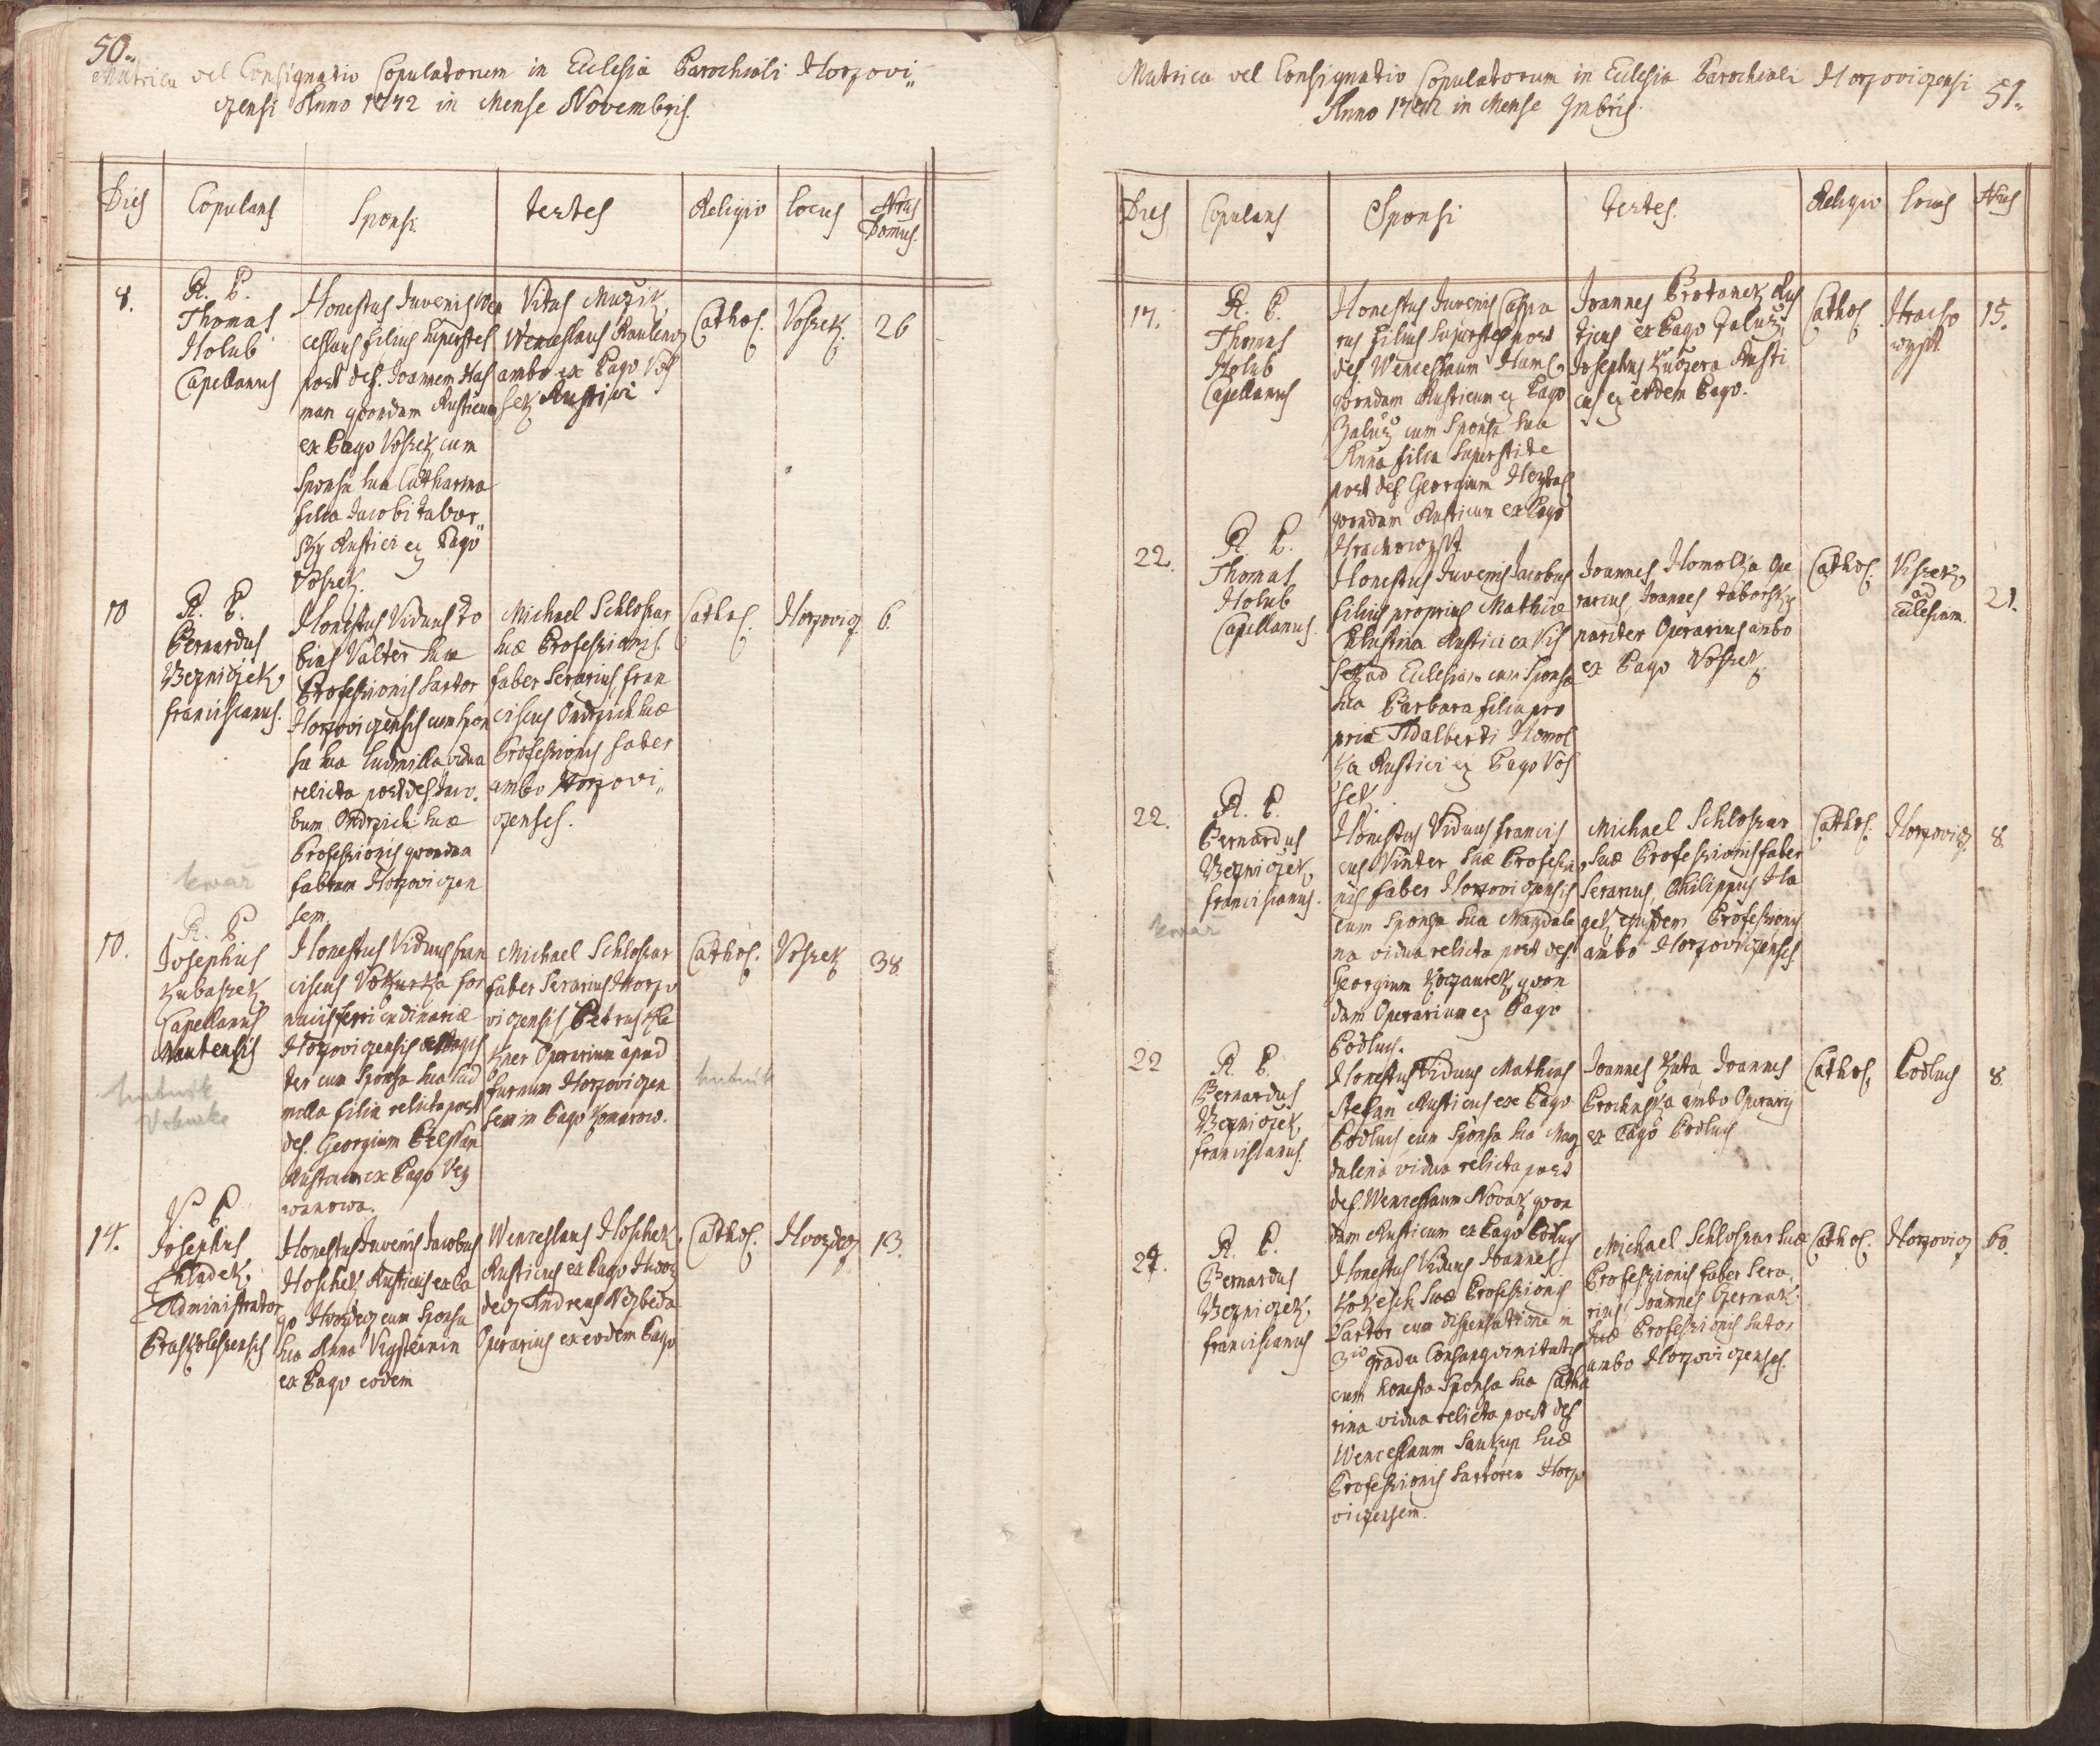 50.
Matrica vel Consignatio Copulatorum in Eclesia Parochiali Horzovi„
czensi Anno 1772 in Mense Novembris.
Dies Copulans Sponsi testes Religio Locus Nrus Domus.
8.
R. P.
Thomas
Holub
Capellanus
Honestus Juvenis Wen
ceslaus filius superstes
post def. Joannem Has
man quondam Rusticum
ex Pago Voszek cum
Sponsa sua Catharina
filia Jacobi tabor„
sky Rustici ex Pago
Voszek.
Vitus Muzik,
Wenceslaus
ambo ex Pago Vos
sek Rustici
Cathol.
Voszek
26
10
R. P.
Bernardus
Wezniczek,
franciscanus.
Honestus Viduus to
bias Valter suae
Professionis Sartor
Horzoviczensis cum spon
sa sua Ludmilla vidua
relicta post def. Jaco.
bum Ondrzich suae
Professionis quondam
fabrum Horzoviczen
sem.
Michael Schloszar
suae Professionis
faber serarius, fran
ciscus Ondrzich suae
Professionis faber
ambo Horzovi„
czenses.
Cathol.
Horzovicz
6
kovář
10.
R. P.
Josephus
Kubaszek
Capellanus
Mautensis
Honestus Viduus fran
ciscus Vokurka for
nacis ferri
Horzoviczensis
ter cum Sponsa sua Lud
milla filia relicta post
def. Georgium
Rusticum ex Pago Vey
wanowa.
Michael Schloszar
faber serarius Horzo
viczensis Petrus
Operarium apud
furnum Horzoviczen
sem in Pago Komarow.
Cathol.
Voszek
38
hutník
Vokurka
hutník
14.
P.
Josephus
Hladek,
Administrator
Praskoleszensis
Honestus Juvenis Jacobus
Hoschek Rusticus ex Pa
go Hvozdecz cum Sponsa
sua Anna
ex Pago eodem
Wenceslaus Hoschek,
Rusticus ex Pago Hvoz
decz Andreas Nezbeda
Operarius ex eodem Pago
Cathol.
Hvozdecz
13.
Matrica vel Consignatio Copulatorum in Eclesia Parochiali Horzoviczensi
51.
Anno 1772 in Mense 9mbris.
Dies Copulans Sponsi testes. Religio Locus Nrus
17.
R. P.
Thomas
Holub
Capellanus
Honestus Juvenis Caspa
rus filius superstes post
def. Wenceslaum
quondam Rusticum ex Pago
Zaluz cum Sponsa sua
Anna filia superstite
post def. Georgium
quondam Rusticum ex Pago
Hrachowyszt
Joannes Brotanek Rus
ticus ex Pago Zaluz,
Josephus Kuczera Rusti
cus ex eodem Pago.
Cathol
Hracho
wyszt
15.
22.
R. P.
Thomas
Holub
Capellanus.
Honestus Juvenis Jacobus
filius proprius Mathiae
Rustici ex Vis
sek ad Eclesiam cum Sponsa
sua Barbara filia pro
pria Adalberti Homol
ka Rustici ex Pago Vos
sek.
Joannes Homolka Ope
rarius, Joannes taborsky
pariter Operarius ambo
ex Pago Voszek.
Cathol.
Viszek,
ad
Eclesiam.
21.
22.
R. P.
Bernardus
Wezniczek,
franciscanus.
Honestus Viduus francis
cus Winter suae Professio
nis faber Horzoviczensis
cum Sponsa sua Magdale
na vidua relicta post def.
Georgium quon
dam Operarium ex Pago
Podluh.
Michael Schloszar
suae Professionis faber
serarius, Philippus Ha
gek ejusdem Professionis
ambo Horzoviczenses
Cathol.
Horzovicz.
8
kovář
22
R. P.
Bernardus
Wezniczek,
franciscanus.
Honestus Viduus Mathias
Stefan Rusticus ex Pago
Podluh cum Sponsa sua Mag
dalena vidua relicta post
def. Wenceslaum Novak quon
dam Rusticum ex Pago Podluh
Joannes Kuta, Joannes
Prochaska ambo Operarii
ex Pago Podluh
Cathol.
Podluh
8
24.
R. P.
Bernardus
Wezniczek,
franciscanus
Honestus Viduus Joannes
Kokesch suae Professionis
Sartor cum dispensatione in
3tio gradu Consanguinitatis
cum honesta Sponsa sua Catha
rina vidua relicta post def.
Wenceslaum Saukup suae
Professionis Sartorem Horzo
viczensem.
Michael Schloszar suae
Professionis faber sera„
rius, Joannes Czermak
suae Professionis sutor
ambo Horzoviczenses.
Cathol.
Horzovicz
60.